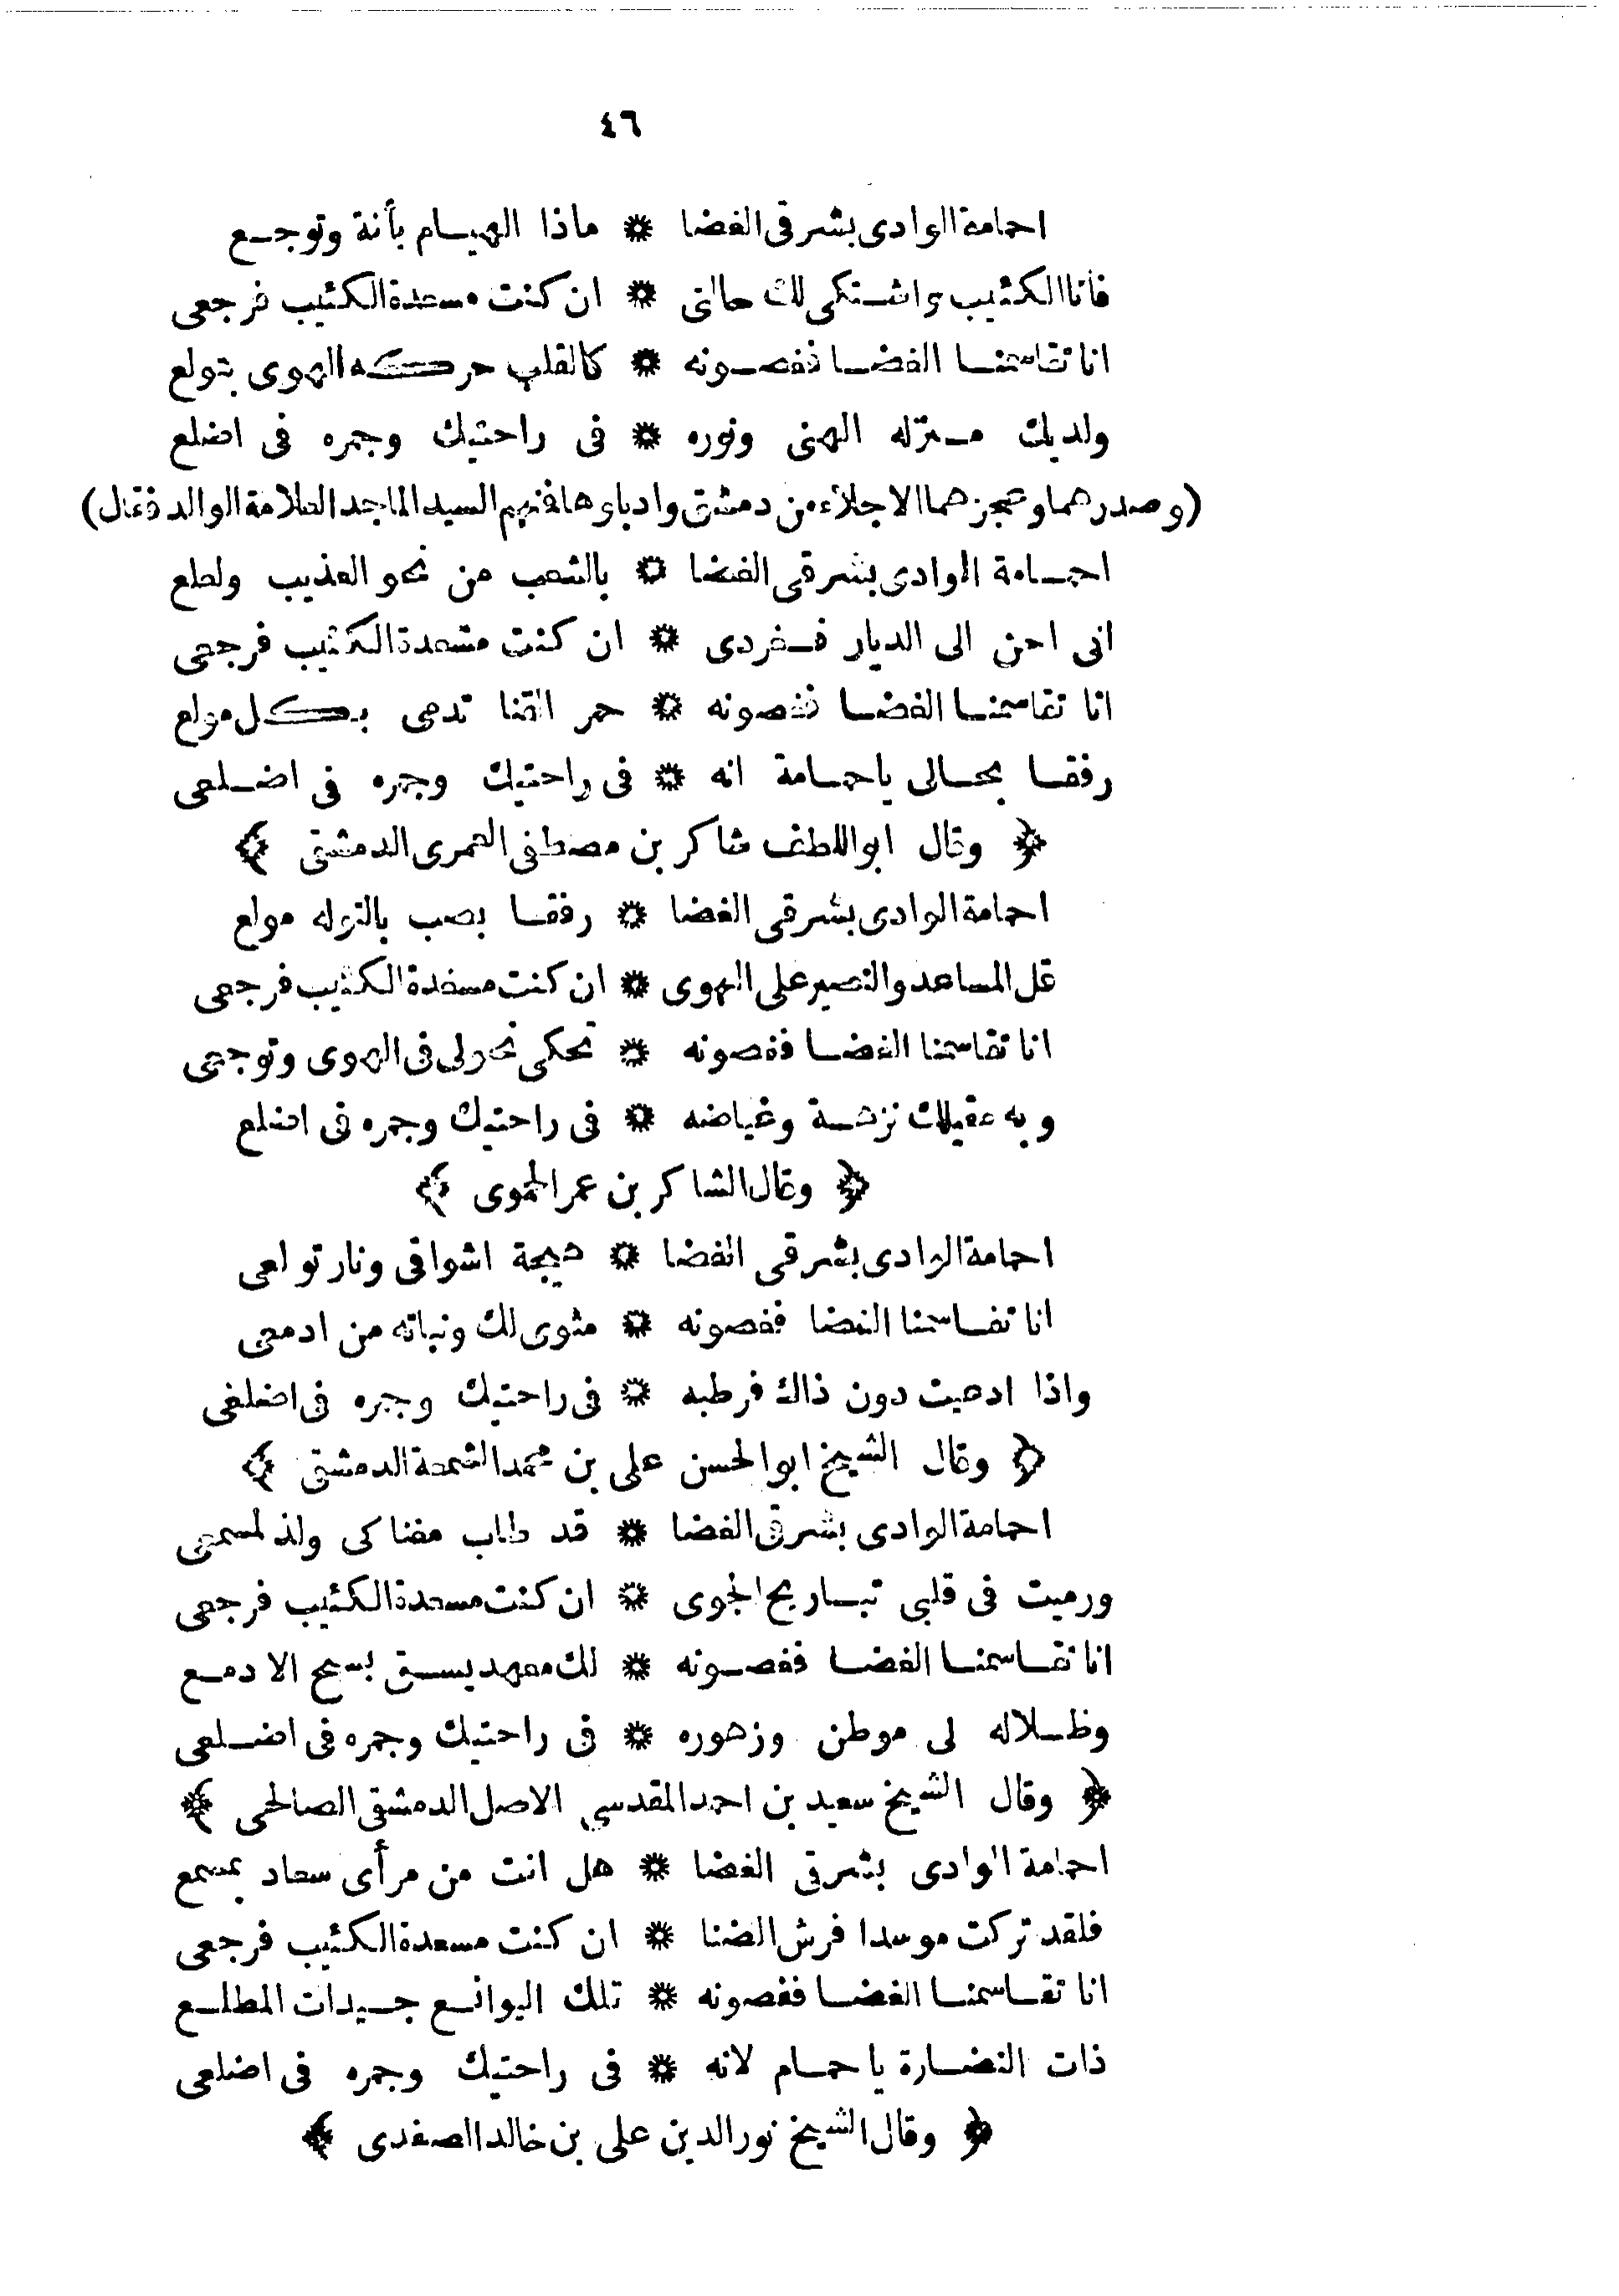 ٤٦
احمامة الوادى بشرقى الغضا * ماذا الهيام بأنة وتوجع
فانا الكثيب واشتكى لك حالتى * ان كنت مسعدة الكئيب فرجعى
انا تقاسمنا الغضا فغصونه * كالقلب حركه الهوى بتولع
ولديك منزله الهنى ونوره * فى راحتيك وجمره فى اضلع
(وصدرهما وعجزهما الاجلاء من دمشق وادباوها فنهم السيد الماجد العلامة الوالد فقال)
احمامة الوادى بشرقى الغضا * بالشعب من نحو العذيب ولعلع
انى احن الى الديار فغردى * ان كنت مسعدة الكئيب فرجعى
انا تقاسمنا الغضا فغصونه * حمر القنا تدمى بكل مولع
رفقا بحالى ياحمامة انه * فى راحتيك وجمره فى اضلعى
﴿ وقال ابو اللطف شاكر بن مصطفى العمرى الدمشقى ﴾
احمامة الوادى بشرقى الغضا * رفقا بصب بالتوله مولع
قل المساعد والنصير على الهوى * ان كنت مسعدة الكئيب فرجعى
انا تقاسمنا الغضا فغصونه * تحكى نحولى فى الهوى وتوجعى
وبه مقيلات نزهة وغياضه * فى راحتيك وجمره فى اضلع
﴿ وقال الشاكر بن عمر الحموى ﴾
احمامة الوادى بشرقى الغضا * هيجة اشواقى ونار تولعى
انا تقاسمنا الغضا فغصونه * مثوى لك ونباته من ادمعى
واذا ادعيت دون ذاك فرطبه * فى راحتيك وجمره فى اضلعى
﴿ وقال الشيخ ابو الحسن على بن محمد الشمعة الدمشقى ﴾
احمامة الوادى بشرقى الغضا * قد طاب مغناكى ولذ لمسمعى
ورميت فى قلبى تباريح الجوى * ان كنت مسعدة الكئيب فرجعى
انا تقاسمنا الغضا فغصونه * لك معهد يسقى بسح الادمع
وظلاله لى موطن وزهوره * فى راحتيك وجمره فى اضلعى
﴿ وقال الشيخ سعيد بن احمد المقدسى الاصل الدمشقى الصالحى ﴾
احمامة الوادى بشرقى الغضا * هل انت من مرأى سعاد بمسمع
فلقد تركت موسدا فرش الضنا * ان كنت مسعدة الكئيب فرجعى
انا تقاسمنا الغضا فغصونه * تلك اليوانع جيدات المطلع
ذات النضارة ياحمام لانه * فى راحتيك وجمره فى اضلعى
﴿ وقال الشيخ نور الدين على بن خالد الصفدى ﴾